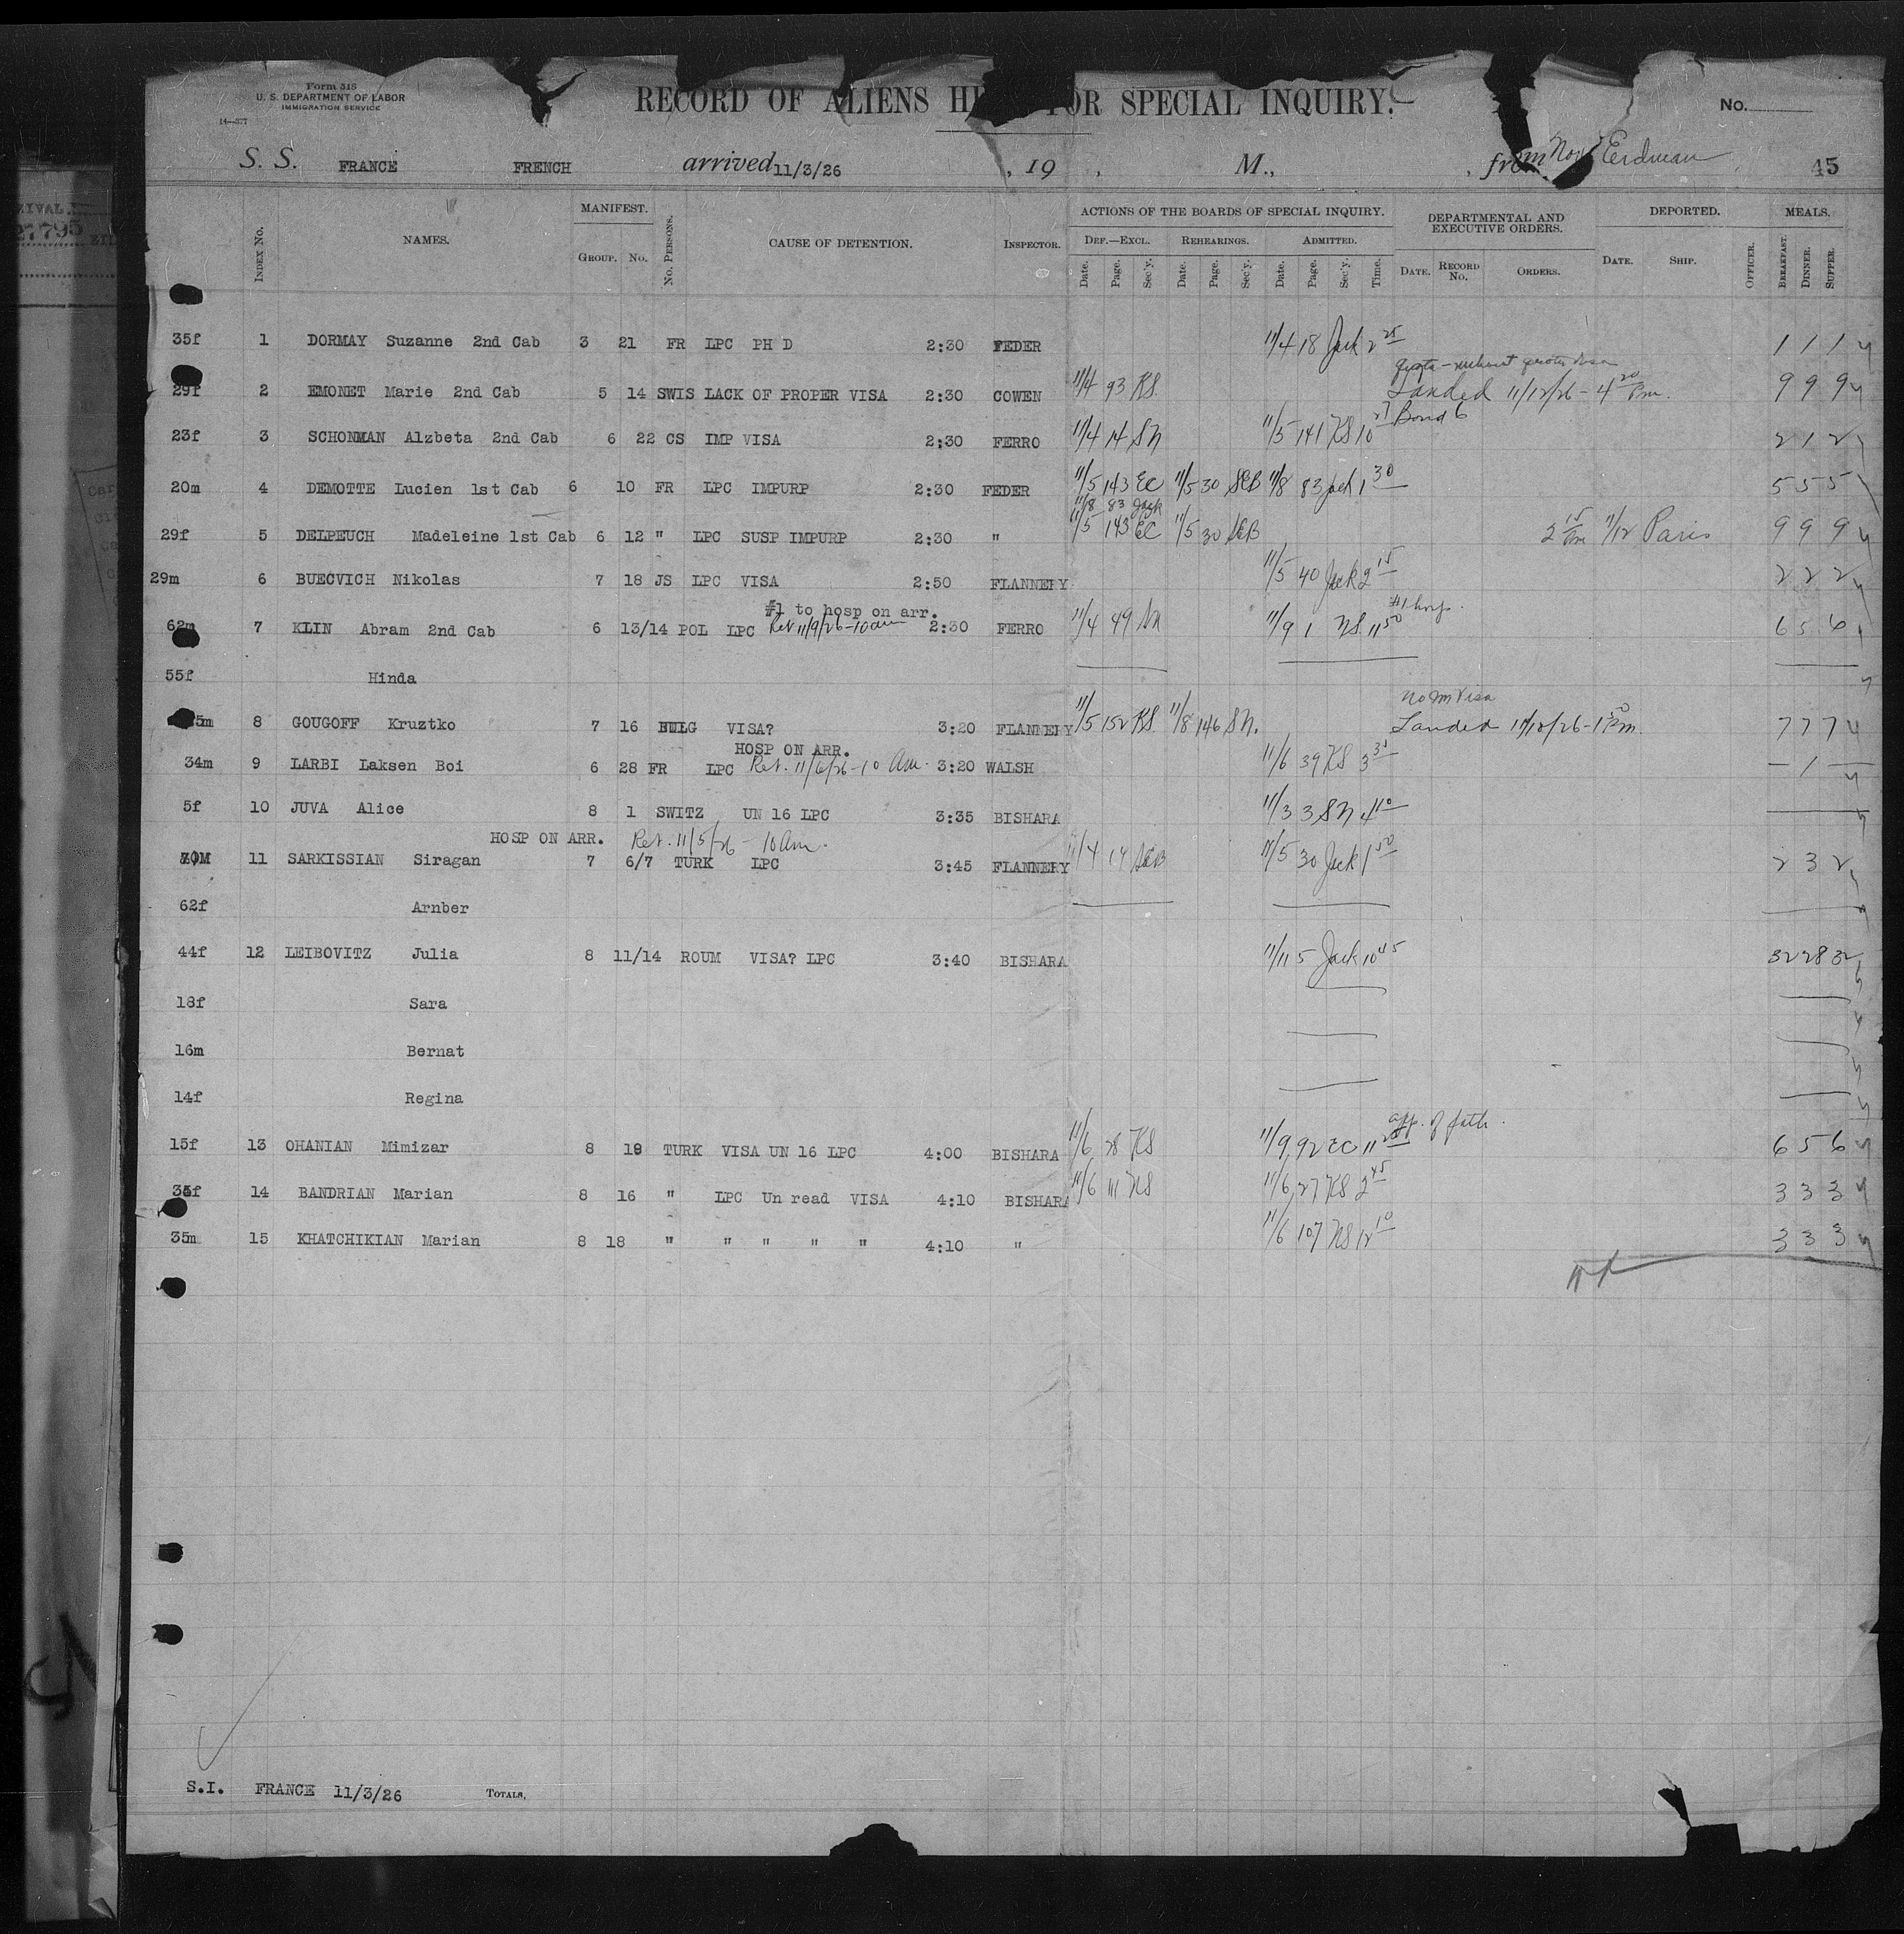 Form 518
U. S. DEPARTMENT OF LABOR
IMMIGRATION SERVICE
14—377
RECORD OF ALIENS HE FOR SPECIAL INQUIRY.
No.
S. S. FRANCE FRENCH arrived 11/3/26 , 19 , M., , from Erdman 45
INDEX No. NAMES. MANIFEST. GROUP. No. No. PERSONS. CAUSE OF DETENTION. INSPECTOR. ACTIONS OF THE BOARDS OF SPECIAL INQUIRY. DEF.—EXCL. REHEARINGS. ADMITTED. Date. Page. Sec'y. Date. Page. Sec'y. Date. Page. Sec'y. Time. DEPARTMENTAL AND EXECUTIVE ORDERS. DATE. RECORD No. ORDERS. DEPORTED. DATE. SHIP. OFFICER. MEALS. BREAKFAST. DINNER. SUPPER.
35f 1 DORMAY Suzanne 2nd Cab 3 21 FR LPC PH D 2:30 FEDER 11/4 18 Jack 2 25 1 1 1
29f 2 EMONET Marie 2nd Cab 5 14 SWIS LACK OF PROPER VISA 2:30 COWEN 11/4 93 KS. Landed 11/12/26 - 4 20 Pm. 9 9 9
23f 3 SCHONMAN Alzbeta 2nd Cab 6 22 CS IMP VISA 2:30 FERRO 11/4 14 SN 11/5 141 KS 10 27 Bond 6 2 1 2
20m 4 DEMOTTE Lucien 1st Cab 6 10 FR LPC IMPURP 2:30 FEDER 11/5 143 EC 11/5 30 SEB 11/8 83 Jack 1 30 5 5 5
11/8 83 Jack
29f 5 DELPEUCH Madeleine 1st Cab 6 12 " LPC SUSP IMPURP 2:30 " 11/5 143 EC 11/5 30 SEB 2 15 Pm 11/12 Paris 9 9 9
29m 6 BUECVICH Nikolas 7 18 JS LPC VISA 2:50 FLANNERY 11/5 40 Jack 2 15 2 2 2
#1 to hosp on arr. #1 hosp.
62m 7 KLIN Abram 2nd Cab 6 13/14 POL LPC Ret 11/9/26 - 10 am 2:30 FERRO 11/4 49 SN 11/9 1 NS. 11 50 6 5 6
55f Hinda
No Im Visa
8 GOUGOFF Kruztko 7 16 BULG VISA? 3:20 FLANNERY 11/5 152 KS. 11/8 146 SN. Landed 11/10/26 - 1 Pm. 7 7 7
HOSP ON ARR.
34m 9 LARBI Laksen Boi 6 28 FR LPC Ret. 11/6/26 - 10 Am. 3:20 WALSH 11/6 39 KS 3 — 1 —
5f 10 JUVA Alice 8 1 SWITZ UN 16 LPC 3:35 BISHARA 11/3 3 SN 4 10
HOSP ON ARR. Ret. 11/5/26 - 10 am.
11 SARKISSIAN Siragan 7 6/7 TURK LPC 3:45 FLANNERY 11/4 SEB 11/5 30 Jack 1 50 2 3 2
62f Arnber
44f 12 LEIBOVITZ Julia 8 11/14 ROUM VISA? LPC 3:40 BISHARA 11/11 5 Jack 10 45 32 28 32
18f Sara
16m Bernat
14f Regina
app. of fath.
15f 13 OHANIAN Mimizar 8 19 TURK VISA UN 16 LPC 4:00 BISHARA 11/6 28 KS 11/9 92 EC 11 6 5 6
14 BANDRIAN Marian 8 16 " LPC Un read VISA 4:10 BISHARA 11/6 111 NS 11/6 27 KS 2 45 3 3 3
35m 15 KHATCHIKIAN Marian 8 18 " " " " " 4:10 " 11/6 107 NS 12 10 3 3 3
S.I. FRANCE 11/3/26 TOTALS,